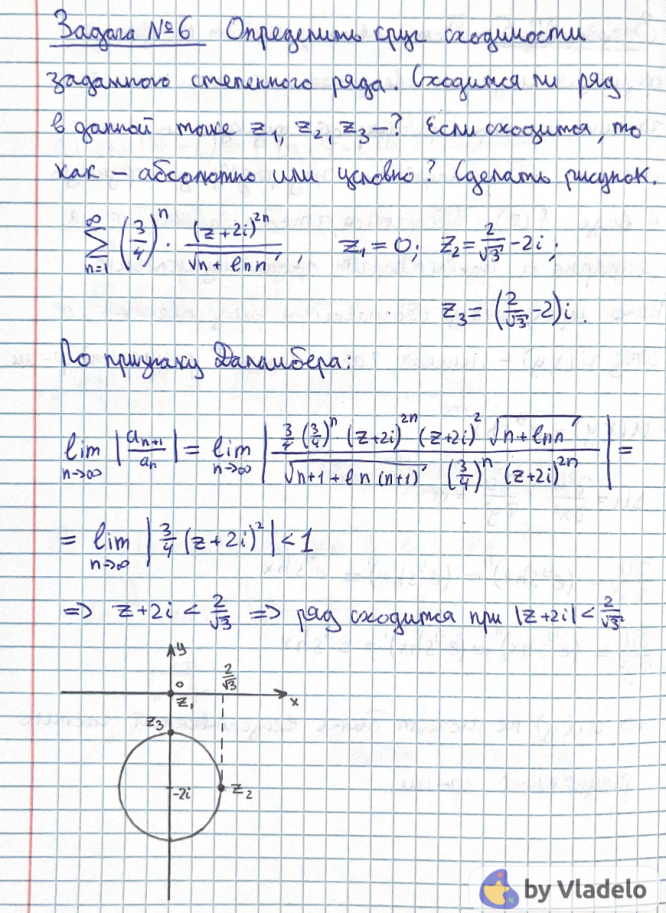 Задача №6 Определить круг сходимости
заданного степенного ряда. Сходится ли ряд
в данной точке z₁, z₂, z₃ -? Если сходится, то
как - абсолютно или условно? Сделать рисунок.
∑_{n=1}^{∞} (3/4)ⁿ · (z+2i)²ⁿ / √(n+ln n), z₁=0; z₂=2/√3-2i;
z₃=(2/√3-2)i.
По признаку Даламбера:
lim_{n→∞} |a_{n+1}/a_n| = lim_{n→∞} |(3/4 (3/4)ⁿ (z+2i)²ⁿ (z+2i)² √(n+ln n)) / (√(n+1+ln(n+1)) (3/4)ⁿ (z+2i)²ⁿ)| =
= lim_{n→∞} |3/4 (z+2i)²| < 1
=> z+2i < 2/√3 => ряд сходится при |z+2i| < 2/√3
y
0
2/√3
z₁
x
z₃
-2i
z₂
by Vladelo